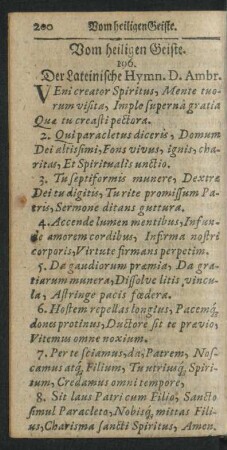 200 Vom heiligen Geiste.
Vom heiligen Geiste.
196.
Der Lateinische Hymn. D. Ambr.
VEni creator Spiritus, Mente tuo-
rum visita, Imple supernâ gratia
Quæ tu creasti pectora.
2. Qui paracletus diceris, Domum
Dei altissimi, Fons vivus, ignis, cha-
ritas, Et Spiritualis unctio.
3. Tu septiformis munere, Dextræ
Dei tu digitis, Tu rite promissum Pa-
tris, Sermone ditans guttura.
4. Accende lumen mentibus, Infun-
de amorem cordibus, Infirma nostri
corporis, Virtute firmans perpetim.
5. Da gaudiorum præmia, Da gra-
tiarum munera, Dissolve litis vincu-
la, Astringe pacis fœdera.
6. Hostem repellas longius, Pacemq́;
dones protinus, Ductore sit te prævio,
Vitemus omne noxium.
7. Per te sciamus, da, Patrem, Nos-
camus atq́; Filium, Tu utriusq́; Spiri-
tum, Credamus omni tempore,
8. Sit laus Patri cum Filio, Sancto
simul Paracleto, Nobisq́; mittas Fili-
us, Charisma sancti Spiritus, Amen.